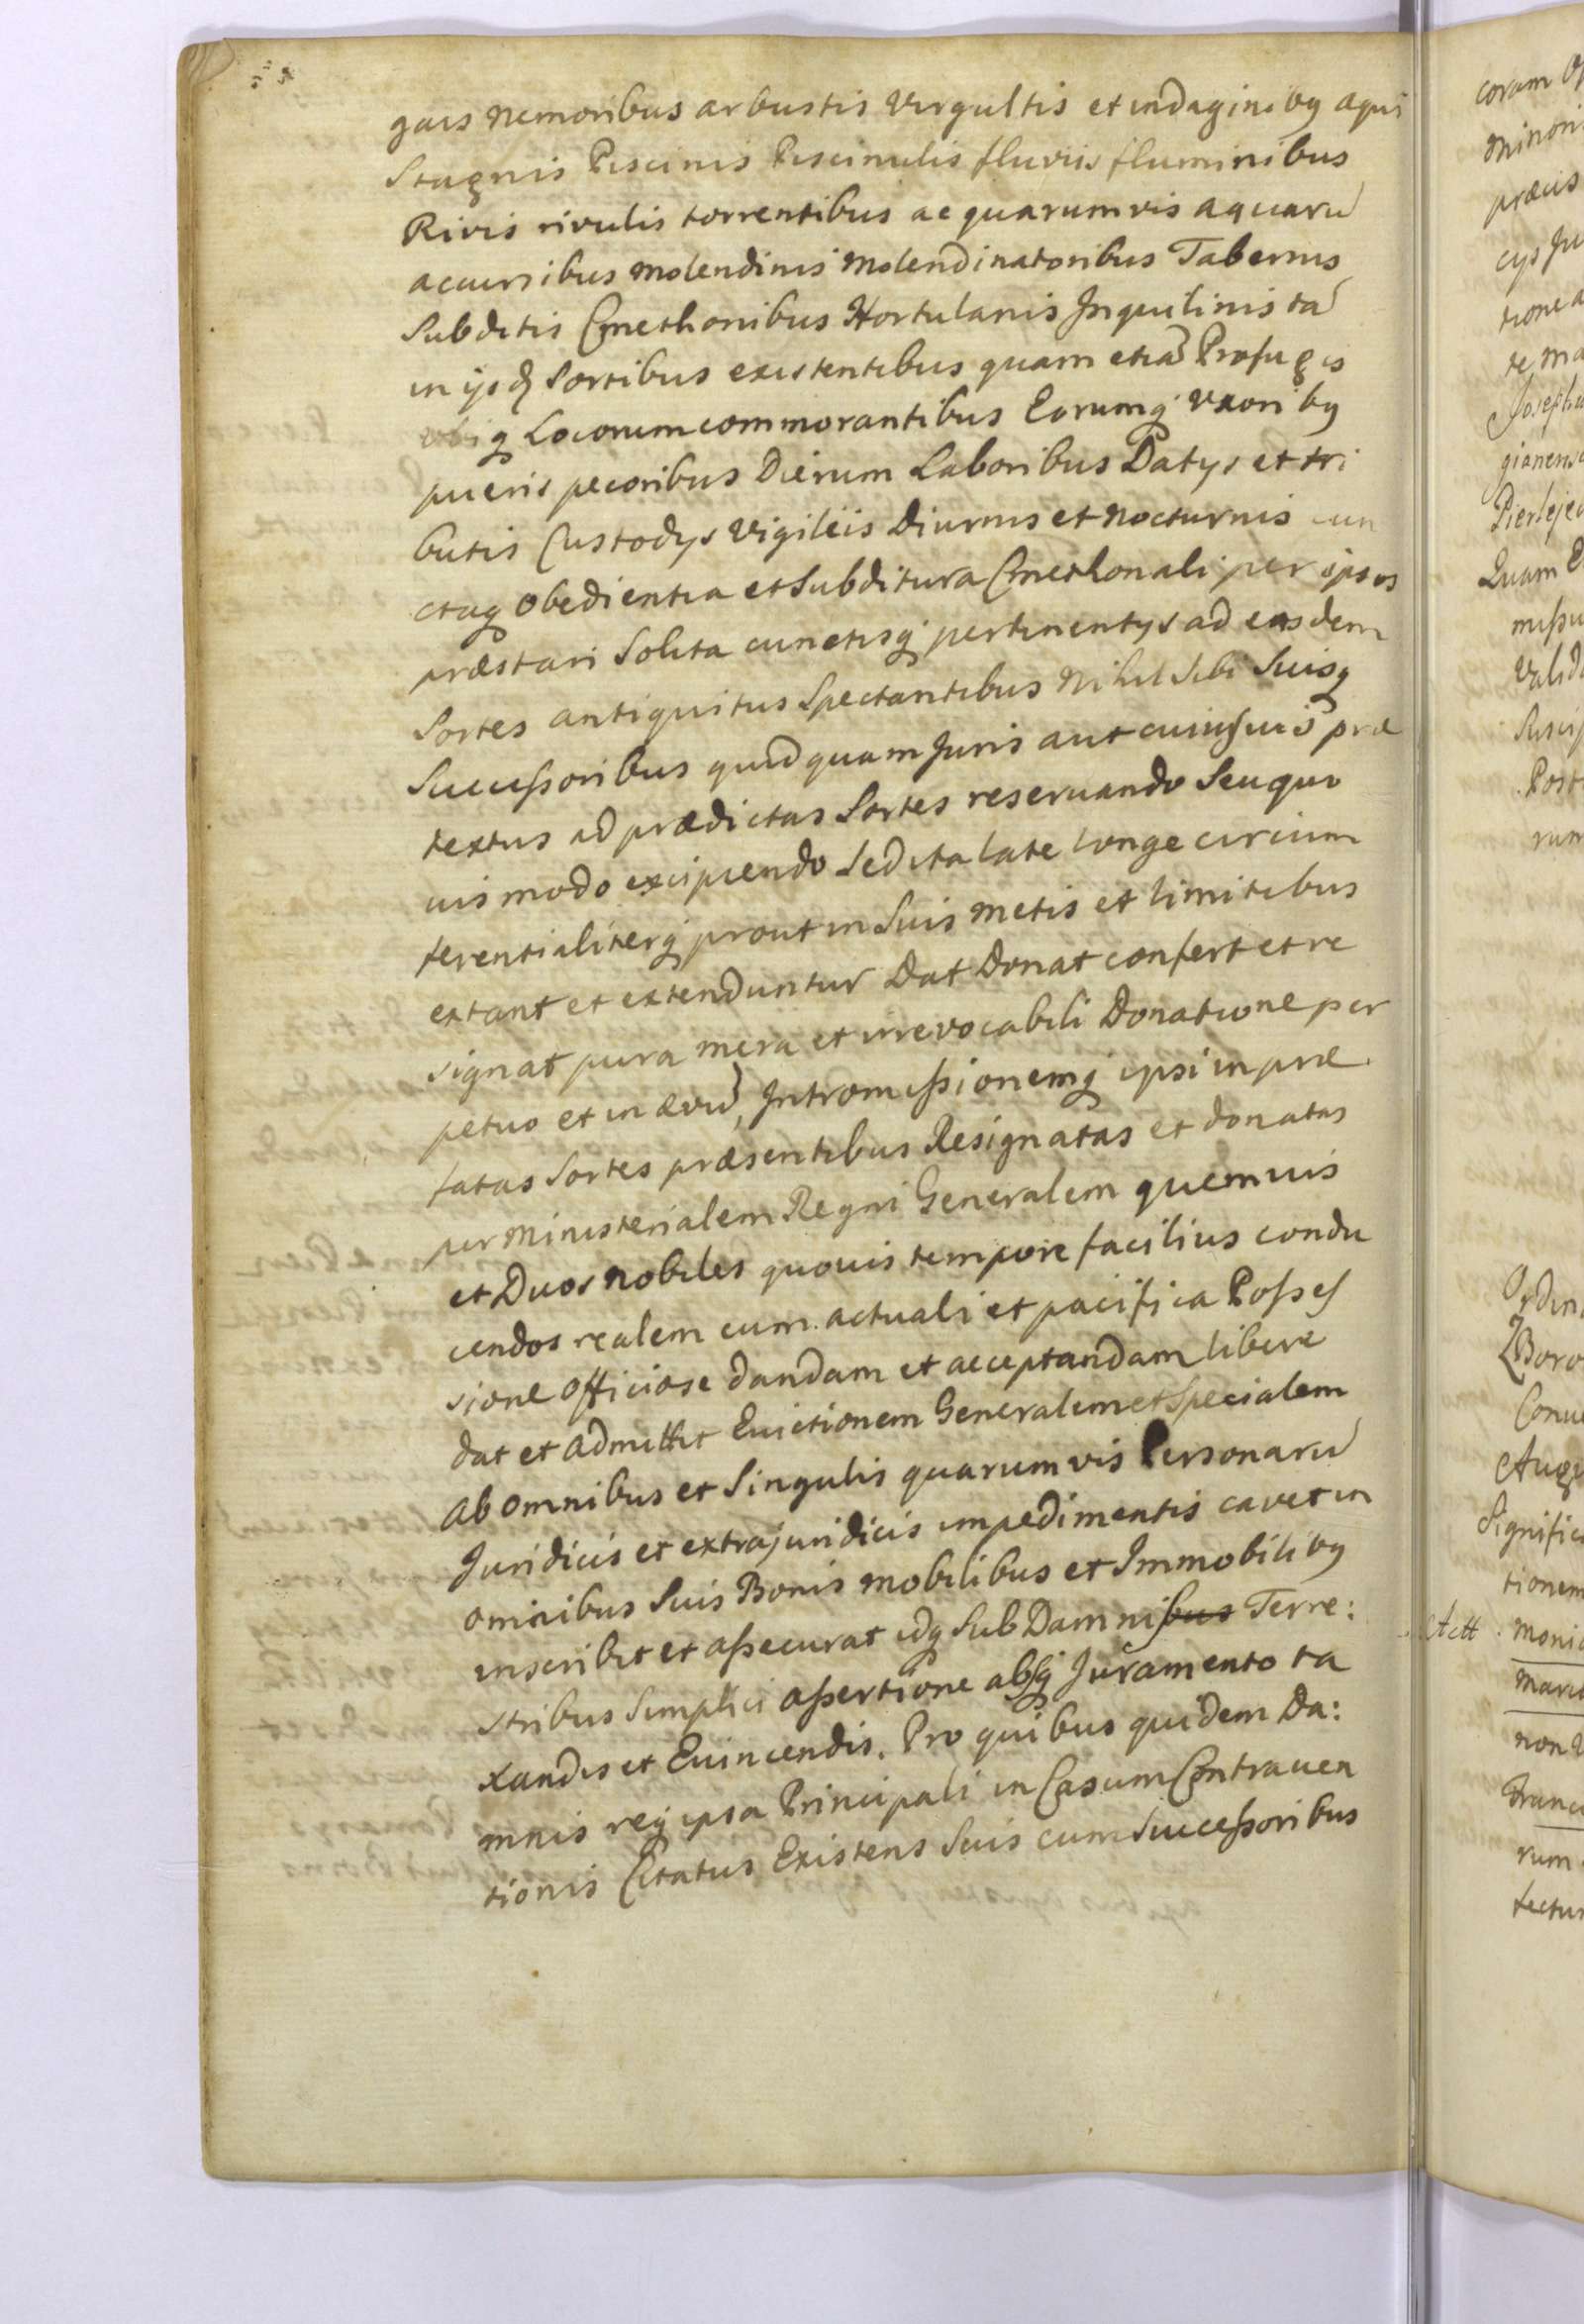 gais nemoribus arbustis Virgultis et indaginibq aqui
Stagnis Piscinis Piscinulis fluviis fluminibus
Rivis rivulis torrentibus ac quarumvis aquarũ
accursibus molendinis Molendinatoribus Tabernis
Subditis Cmethonibus Hortulanis Inquilinis tã
in ijsd Sortibus existentibus quam etiã Profugis
vbiq Locorum commorantibus Eorumq Vxoribq
pueris pecoribus Dierum Laboribus Datys et tri
butis Custodys Vigiliis Diurnis et Nocturnis cun
ctaq Obedientia et Subditura Cmethonali per ipsos
præstari Solita cunctisq pertinentys ad easdem
Sortes antiquitus Spectantibus Nihil Sibi Suisq
Successoribus quidquam Juris aut cuiusuis præ
textus ad prædictas Sortes reseruando Seu quo
uis modo excipiendo Sed ita late longe circum
ferentialiterq prout in Suis metis et limitibus
extant et extenduntur Dat Donat confert et re
signat pura mera et irrevocabili Donatione per
petuo et in ævũ, Intromissionemq ipsi in præ
fatas Sortes præsentibus Resignatas et donatas
per Ministerialem Regni Generalem quemuis
et Duos Nobiles quouis tempore facilius condu
cendos realem cum actuali et pacifica Posses
sione Officiose dandam et acceptandam libere
dat et admittit Euictionem Generalem et Specialem
ab omnibus et Singulis quarumvis Personarũ
Juridicis et extrajuridicis impedimentis cavet in
omnibus Suis Bonis mobilibus et Immobilibq
inscribit et assecurat idq Sub Damnisbus Terre:
stribus Simplici assertione absq Juramento ta
xandis et Euincendis. Pro quibus quidem Da:
mnis req ipsa Principali in Casum Contrauen
tionis Citatus Existens Suis cum Successoribus
coram
minori
præcis
cys Ju
tione
te ma
gianens
Pierleje
Quam
missu
Valid
Post
rum
Ordin
Zboro
Conu
Augu
Signific
tionem
Actt moni
mari
non
Franc
rum
fectus